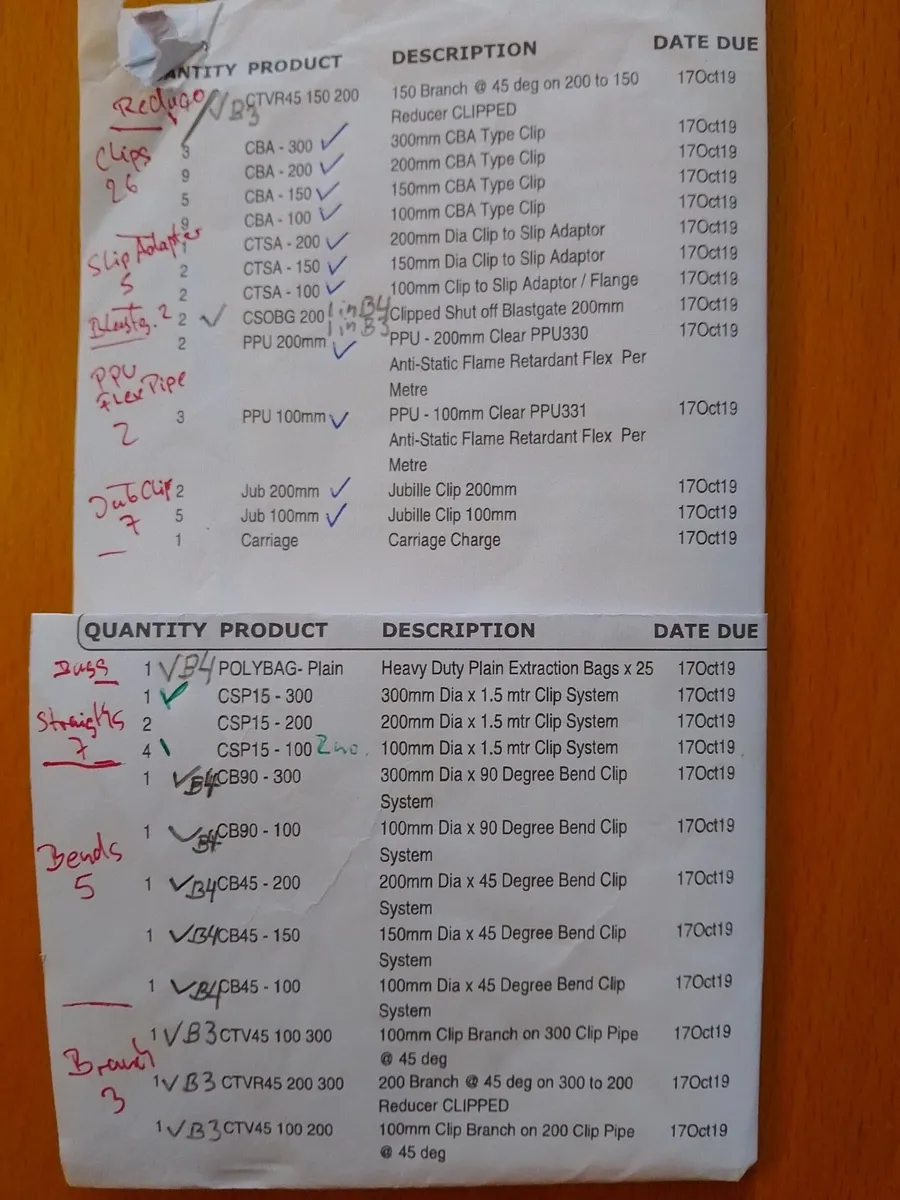 ANTITY PRODUCT DESCRIPTION DATE DUE
Reduco √B3 CTVR45 150 200 150 Branch @ 45 deg on 200 to 150 17Oct19
Reducer CLIPPED
Clips 3 CBA - 300 ✓ 300mm CBA Type Clip 17Oct19
26 9 CBA - 200 ✓ 200mm CBA Type Clip 17Oct19
5 CBA - 150 ✓ 150mm CBA Type Clip 17Oct19
9 CBA - 100 ✓ 100mm CBA Type Clip 17Oct19
Slip Adapter 1 CTSA - 200 ✓ 200mm Dia Clip to Slip Adaptor 17Oct19
5 2 CTSA - 150 ✓ 150mm Dia Clip to Slip Adaptor 17Oct19
2 CTSA - 100 ✓ 100mm Clip to Slip Adaptor / Flange 17Oct19
Blastg. 2 2 ✓ CSOBG 200 1 in B4 Clipped Shut off Blastgate 200mm 17Oct19
1 in B3
2 PPU 200mm ✓ PPU - 200mm Clear PPU330 17Oct19
PPU Anti-Static Flame Retardant Flex Per
Flex Pipe Metre
2 3 PPU 100mm ✓ PPU - 100mm Clear PPU331 17Oct19
Anti-Static Flame Retardant Flex Per
Metre
Jub Clip 2 Jub 200mm ✓ Jubille Clip 200mm 17Oct19
7 5 Jub 100mm ✓ Jubille Clip 100mm 17Oct19
1 Carriage Carriage Charge 17Oct19
QUANTITY PRODUCT DESCRIPTION DATE DUE
Bags 1 √B4 POLYBAG- Plain Heavy Duty Plain Extraction Bags x 25 17Oct19
1 ✓ CSP15 - 300 300mm Dia x 1.5 mtr Clip System 17Oct19
Straights 2 CSP15 - 200 200mm Dia x 1.5 mtr Clip System 17Oct19
7 4 \ CSP15 - 100 100mm Dia x 1.5 mtr Clip System 17Oct19
1 ✓B4 CB90 - 300 300mm Dia x 90 Degree Bend Clip 17Oct19
System
Bends 1 ✓B4 CB90 - 100 100mm Dia x 90 Degree Bend Clip 17Oct19
System
5 1 ✓B4 CB45 - 200 200mm Dia x 45 Degree Bend Clip 17Oct19
System
1 ✓B4 CB45 - 150 150mm Dia x 45 Degree Bend Clip 17Oct19
System
1 ✓B4 CB45 - 100 100mm Dia x 45 Degree Bend Clip 17Oct19
System
1 √B3 CTV45 100 300 100mm Clip Branch on 300 Clip Pipe 17Oct19
Branch @ 45 deg
3 1 √B3 CTVR45 200 300 200 Branch @ 45 deg on 300 to 200 17Oct19
Reducer CLIPPED
1 √B3 CTV45 100 200 100mm Clip Branch on 200 Clip Pipe 17Oct19
@ 45 deg